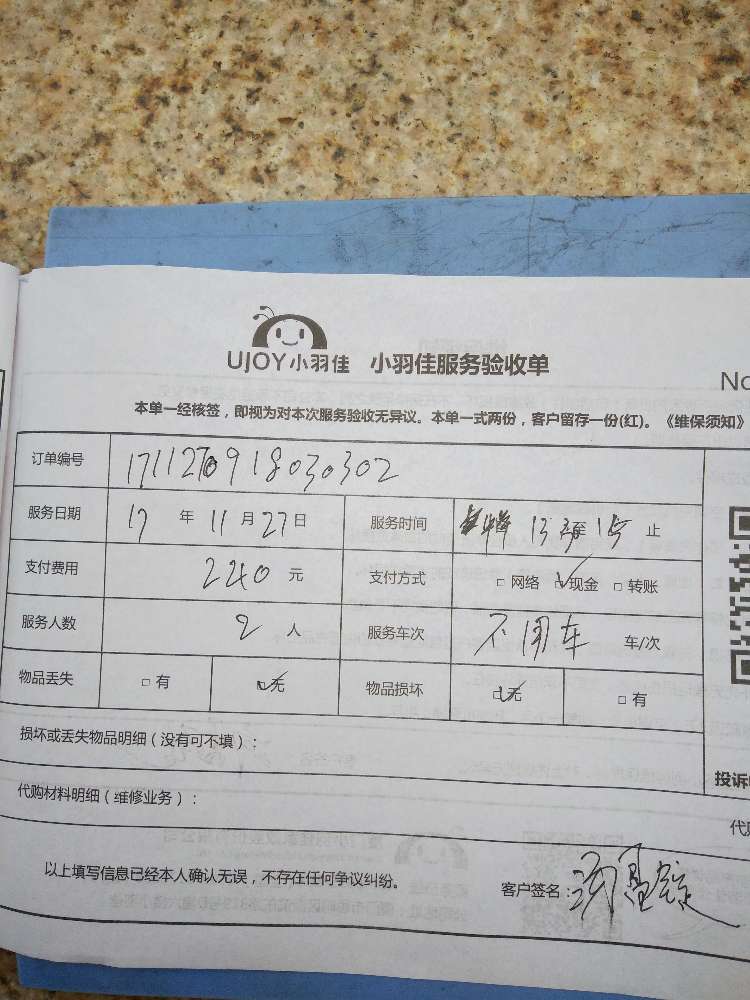 UJOY小羽佳 小羽佳服务验收单
No
本单一经核签，即视为对本次服务验收无异议。本单一式两份，客户留存一份(红)。《维保须知》
订单编号 171127091803030​2
服务日期 17 年 11 月 27 日 服务时间 13 至 15 止
支付费用 220 元 支付方式 □ 网络 ☑ 现金 □ 转账
服务人数 2 人 服务车次 不用车 车/次
物品丢失 □ 有 ☑ 无 物品损坏 ☑ 无 □ 有
损坏或丢失物品明细（没有可不填）：
投诉
代购材料明细（维修业务）：
代
以上填写信息已经本人确认无误，不存在任何争议纠纷。 客户签名：